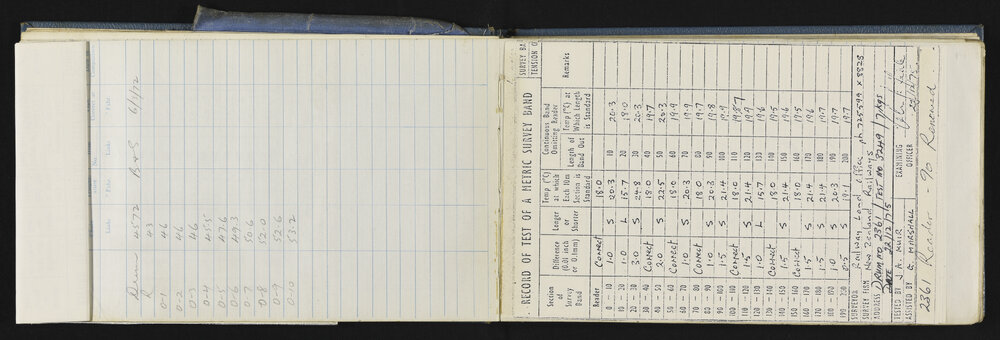 Drum 4572 B+S 6/1/72
R 43
0-1 46
0-2 46
0-3 46
0-4 45.5
0-5 47.6
0-6 49.3
0-7 50.6
0-8 52.0
0-9 52.6
0-10 53.2
RECORD OF TEST OF A METRIC SURVEY BAND
SURVEY BA
TENSION O
Section of Survey Band | Difference (0.01 inch or 0.1mm) | Longer or Shorter | Temp (°C) at which Each 10m Section is Standard | Continuous Band Omitting Reader | Length of Band Out | Temp (°C) at Which Length is Standard | Remarks
Reader Correct 18.0
0 — 10 1.0 S 20.3 10 20.3
10 — 20 1.0 L 15.7 20 18.0
20 — 30 3.0 S 24.8 30 20.3
30 — 40 Correct 18.0 40 19.7
40 — 50 2.0 S 22.5 50 20.3
50 — 60 Correct 18.0 60 19.9
60 — 70 1.0 S 20.3 70 19.9
70 — 80 Correct 18.0 80 19.7
80 — 90 1.0 S 20.3 90 19.8
90 — 100 1.5 S 21.4 100 19.9
100 — 110 Correct 18.0 110 19.8
110 — 120 1.5 S 21.4 120 19.9
120 — 130 1.0 L 15.7 130 19.6
130 — 140 Correct 18.0 140 19.5
140 — 150 1.5 S 21.4 150 19.6
150 — 160 Correct 18.0 160 19.5
160 — 170 1.5 S 21.4 170 19.6
170 — 180 1.5 S 21.4 180 19.7
180 — 190 1.0 S 20.3 190 19.7
190 — 200 0.5 S 19.1 200 19.7
SURVEYOR Railway Land Office ph 725599 x 8828
SURVEY FIRM New Zealand Railways
ADDRESS DRUM NO 2361 / TEST NO 3249 / 7 kgs
DATE 22/12/75
TESTED BY J. A. MUIR EXAMINING
ASSISTED BY G MARSHALL OFFICER 22/12/75
2361 Reader - 90 Renewed.